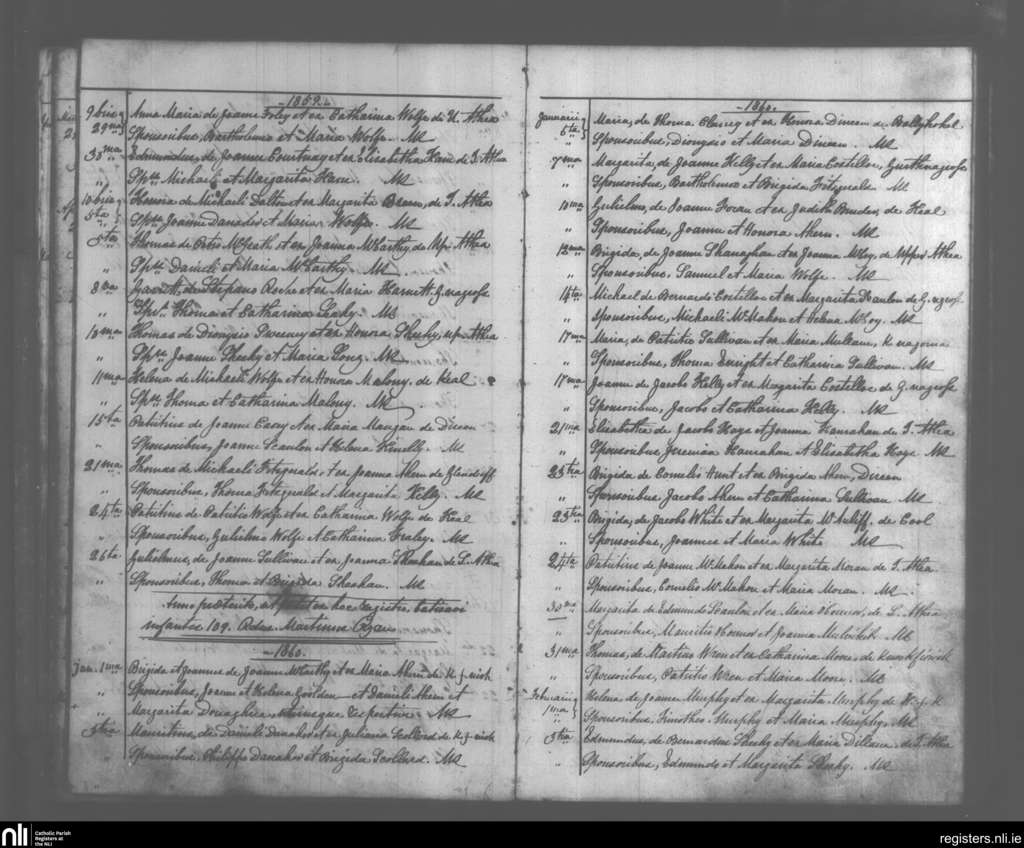 -1859-
9bris 29na Anna Maria de Joanne Foley et ex Catharina Wolfe de U. Athea
Sponsoribus, Bartholomeo et Maria Wolfe. MR
30ma Edmundus, de Joanne Courtnay et ex Elisabetha Hare de T. Athea
" Michaele et Margarita Hare. MR
10bris 5ta Honora de Michaeli Dalton et ex Margarita Breen, de T. Athea
" Joanne Danaher et Maria Wolfe. MR
5ta Thomas de Patrio McGrath et ex Joanna McCarthy de Up. Athea
" Danieli et Maria McCarthy. MR
8va de Stephano Roche et ex Maria Harnett G.nagrose
" Thoma et Catharina Leahy. MR
10ma Thomas de Dionysio Sweeney et ex Honora Sheehy, up. Athea
" Joanne Sheehy et Maria Long. MR
11ma Helena de Michaeli Wolfe et ex Honora Malony. de Keal
" Thoma et Catharina Malony. MR
15ta Patritius de Joanne Casey et ex Maria Mangan de Direen
" Sponsoribus, Joanne Scanlon et Helena Kinelly. MR
21ma Thomas de Michaeli Fitzgerald et ex Joanna Ahern de
" Sponsoribus, Thoma Fitzgerald et Margarita Kelly. MR
24ta Patritius de Patritio Wolfe et ex Catharina Wolfe de Keal
" Sponsoribus, Gulielmo Wolfe et Catharina MR
26ta Gulielmus, de Joanne Sullivan et ex Joanna Sheehan de T. Athea
" Sponsoribus, Thoma et Brigida Sheehan. MR
Anno præterito, ut patet ex hoc registro, batisavi
infantes 109. Martinus Ryan
-1860-
Jan. 1ma Brigida et Joannes de Joanne McCarthy et ex Maria Ahern de K.f.nick
" Sponsoribus, Joanne et Helena et Danieli Ahern et
" Margarita Donaghue, respective. MR
Mauritius, de Danieli Danaher et ex Juliana Scollard de K.f.nick
Sponsoribus, Philippo Danaher et Brigida Scollard. MR
-1860-
Januarii 5ta Maria, de Thoma Clancy et ex Honora Direen de
Sponsoribus, Dionysio et Maria Direen. MR
7ma Margarita, de Joanne Kelly et ex Maria Costelloe, Gurthnagrose
" Sponsoribus, Bartholomeo et Brigida Fitzgerald MR
10ma Gulielmus, de Joanne Foran et ex Judith de Keal
" Sponsoribus, Joanne et Honora Ahern. MR
12ma Brigida, de Joanne Shanaghan et ex Joanna McCoy, de Upper Athea
" Sponsoribus, Samuel et Maria Wolfe. MR
14ta Michael de Bernardo Costelloe et ex Margarita Hanlon de G.ngrose
" Sponsoribus, Michaeli McMahon et Helena McCoy. MR
17ma Maria, de Patritio Sullivan et ex Maria K nagoma
" Sponsoribus, Thoma Enright et Catharina Sullivan. MR
17ma Joanna de Jacobo Kelly et ex Margarita Costelloe de G.nagrose
" Sponsoribus, Jacobo et Catharina Kelly. MR
21ma Elisabetha de Jacobo Hogs et Joanna Hanrahan de T. Athea
" Sponsoribus Jeremia Hanrahan et Elisabetha Hogs MR
23tia Brigida de Cornelio Hunt et ex Brigida Ahern, Direen
" Sponsoribus Jacobo Ahern et Catharina Sullivan MR
23tia Brigida, de Jacobo White et ex Margarita McAuliff. de Cool
" Sponsoribus, Joannes et Maria White MR
24ta Patritius de Joanne McMahon et ex Margarita Moran de T. Athea
" Sponsoribus, Cornelio McMahon et Maria Moran. MR.
30ma Margarita de Edmundo Scanlon et ex Maria Connor, de L. Athea
" Sponsoribus, Mauritio Connor et Joanna MR
31ma Thomas, de Martino Wren et ex Catharina Moore, de Knockfinick
" Sponsoribus, Patritio Wren et Maria Moore. MR
Februarii 1ma Helena de Joanne Murphy et ex Margarita Murphy de
" Sponsoribus, Timotheo Murphy et Maria Murphy. MR
3tia Edmundus, de Bernardus Sheehy et ex Maria Dillane, de T. Athea
" Sponsoribus, Edmundo et Margarita Sheehy. MR
nli
Catholic Parish
Registers at
the NLI
registers.nli.ie